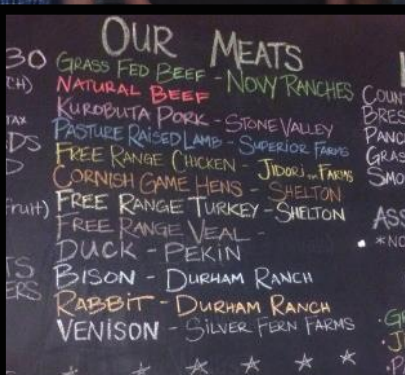 OUR MEATS
GRASS FED BEEF - NOVY RANCHES
NATURAL BEEF
KUROBUTA PORK - STONE VALLEY
PASTURE RAISED LAMB - SUPERIOR FARMS
FREE RANGE CHICKEN - JIDORI FARMS
CORNISH GAME HENS - SHELTON
FREE RANGE TURKEY - SHELTON
FREE RANGE VEAL -
DUCK - PEKIN
BISON - DURHAM RANCH
RABBIT - DURHAM RANCH
VENISON - SILVER FERN FARMS
30
CH)
TAX
DS
Fruit)
TS
ERS
COUN
BRES
PANC
GRAS
SMO
ASS
*NO